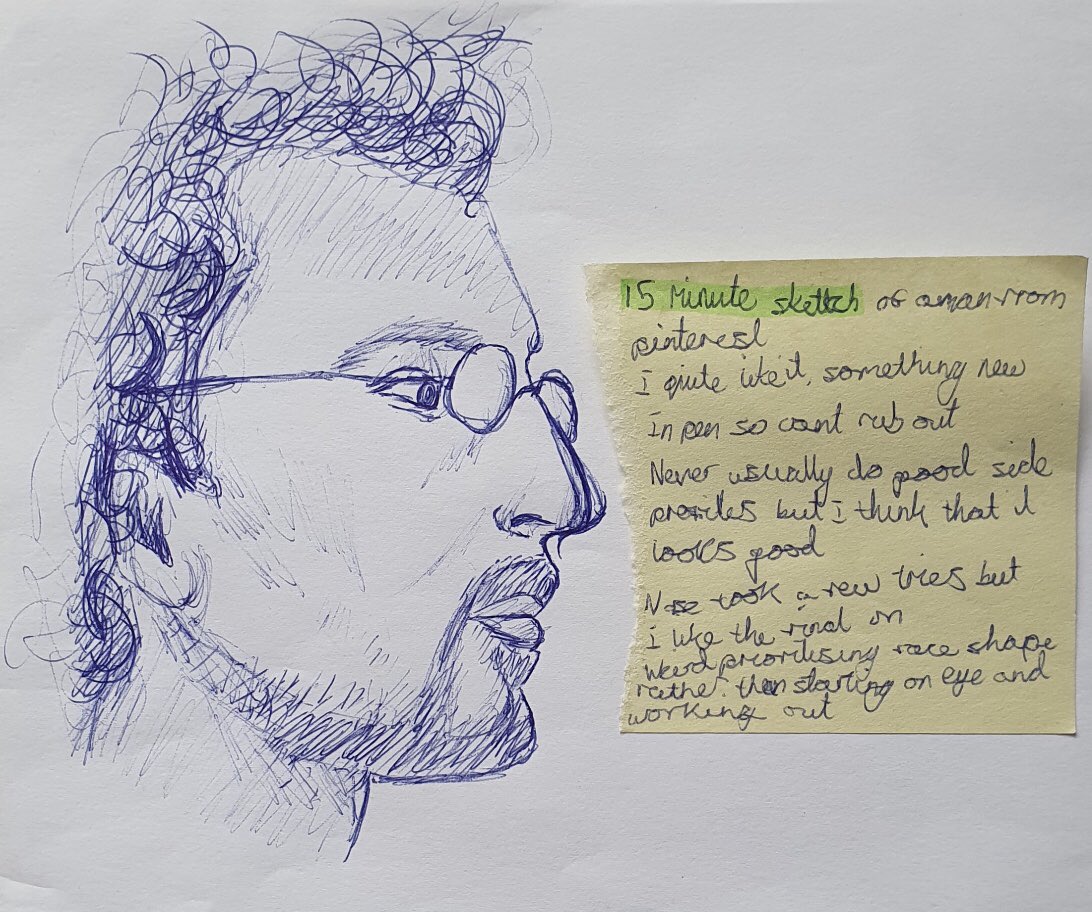 15 Minute sketch of a man from
pinterest
I quite like it, something new
In pen so cant rub out
Never usually do good side
profiles but I think that it
looks good
Nose took a few tries but
I like the final on
Weird prioritising face shape
rather then starting on eye and
working out